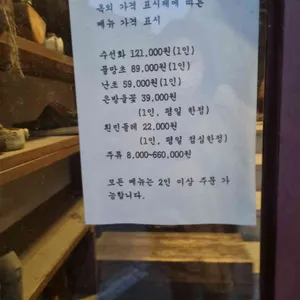 옥외 가격 표시제에 따른
메뉴 가격 표시
수선화 121,000원(1인)
물망초 89,000원(1인)
난초 59,000원(1인)
은방울꽃 39,000원
(1인, 평일 한정)
흰민들레 22,000원
(1인, 평일 점심한정)
주류 8,000~660,000원
모든 메뉴는 2인 이상 주문 가
능합니다.